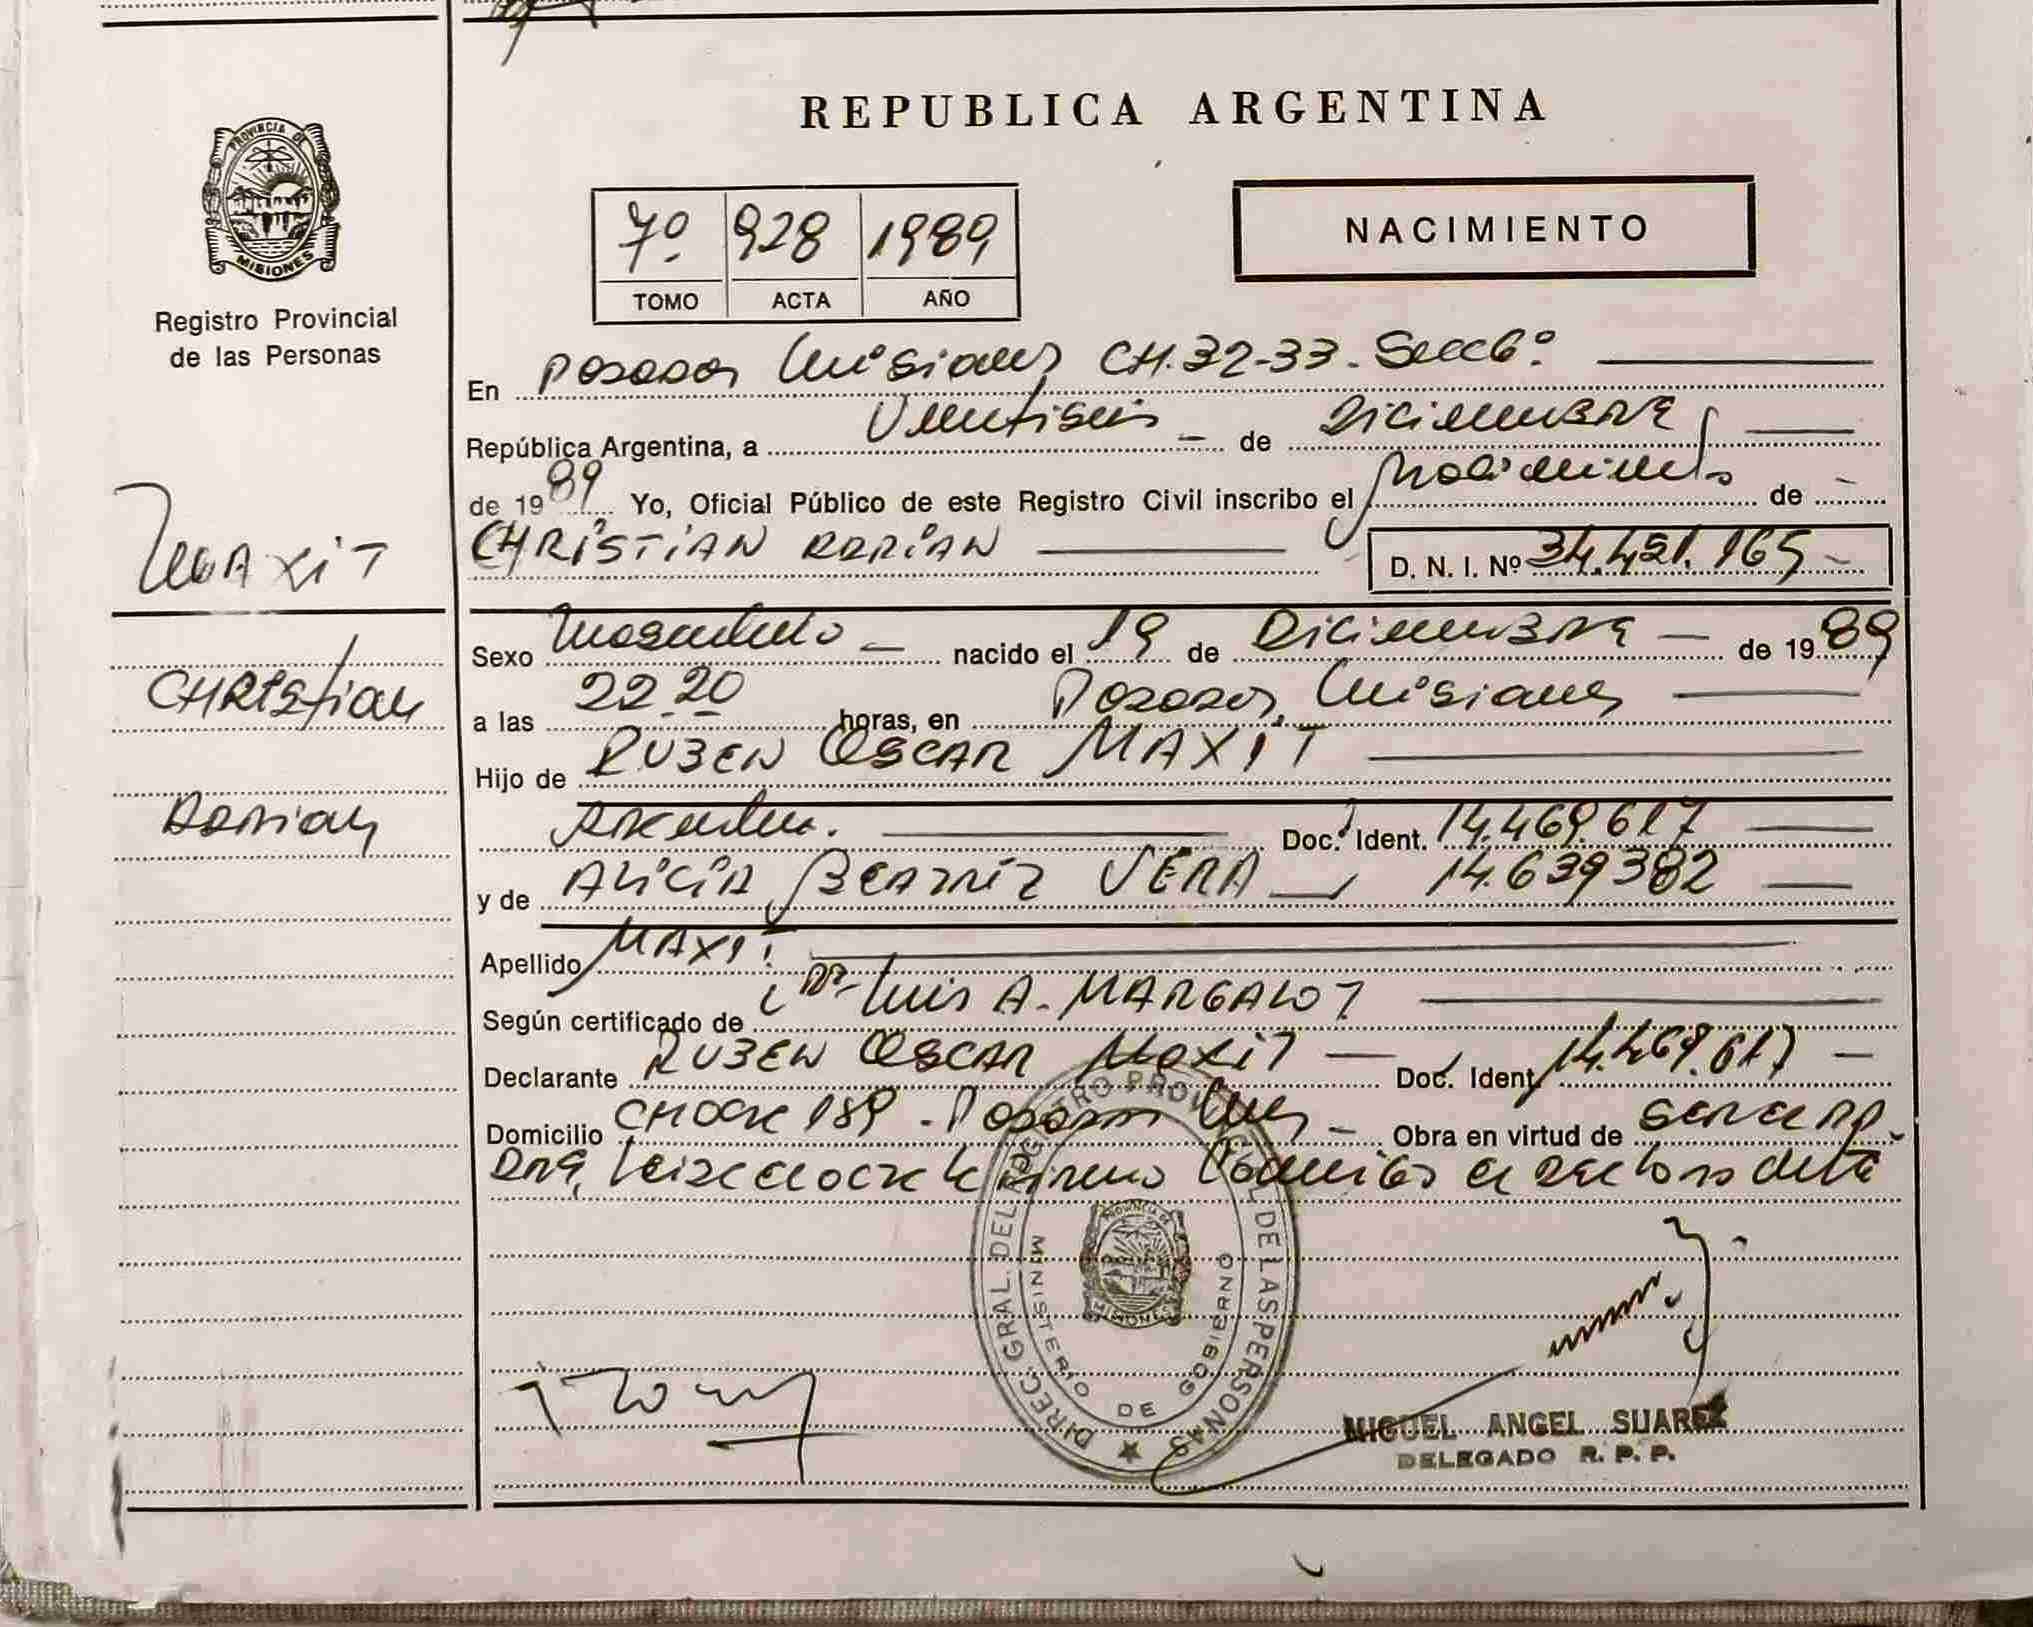 REPUBLICA ARGENTINA
PROVINCIA DE MISIONES
Registro Provincial
de las Personas
7º 928 1989
TOMO ACTA AÑO
NACIMIENTO
En Posadas Misiones CH. 32-33. Secc 6º
República Argentina, a Veintiseis de Diciembre
de 1989 Yo, Oficial Público de este Registro Civil inscribo el Nacimiento de
MAXIT
CHRISTIAN ADRIAN D. N. I. Nº 34.451.165
Sexo Masculino nacido el 19 de Diciembre de 1989
Christian
a las 22.20 horas, en Posadas, Misiones
Hijo de RUBEN OSCAR MAXIT
Adrian
Argentino. Doc. Ident. 14.469.617
y de ALICIA BEATRIZ VERA 14.639382
Apellido MAXIT
Según certificado de Dr. Luis A. MARGALOT
Declarante RUBEN OSCAR MAXIT Doc. Ident. 14.469.617
Domicilio 189 - Posadas Mnes Obra en virtud de ser el
DIREC. GRAL. DEL REGISTRO PROVINCIAL DE LAS PERSONAS
MINISTERIO DE GOBIERNO
PROVINCIA DE MISIONES
MIGUEL ANGEL SUAREZ
DELEGADO R. P. P.